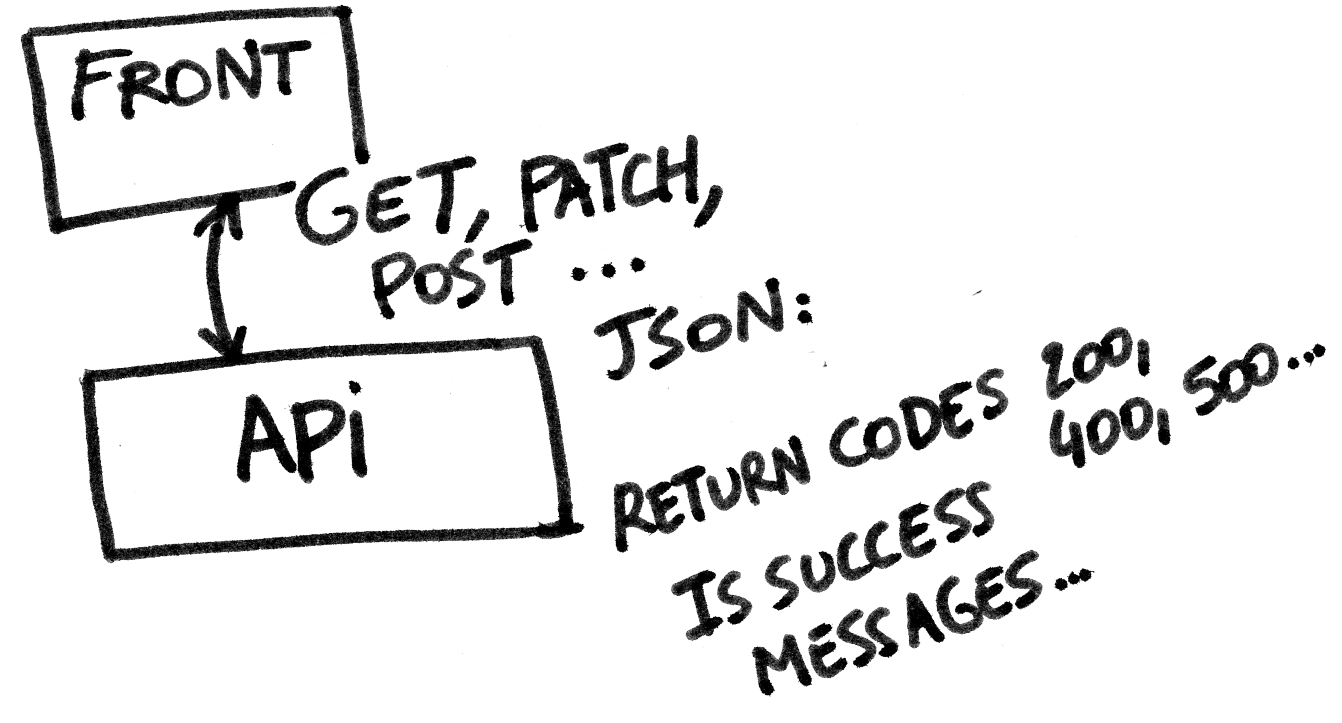 FRONT
GET, PATCH,
POST ...
JSON:
API
RETURN CODES 200,
400, 500...
IS SUCCESS
MESSAGES...